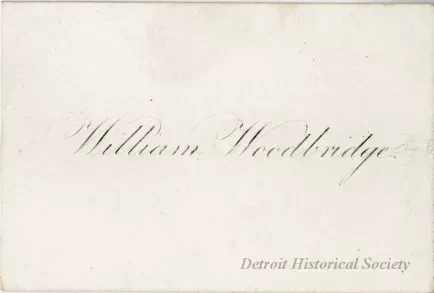 William Woodbridge.
Detroit Historical Society